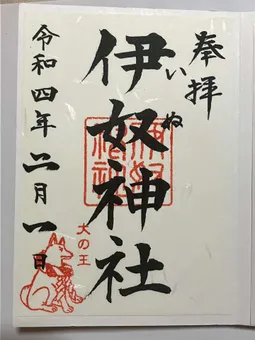 奉拝
いぬ
伊奴神社
伊奴
神社
令和四年二月一日
犬の王